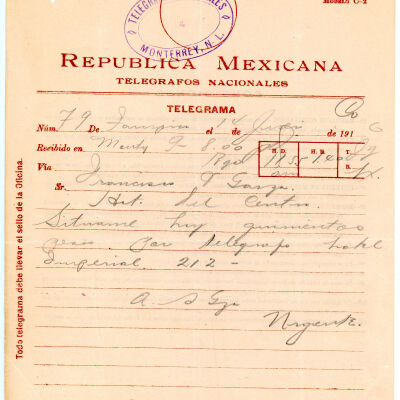 MODELO C-2
TELEGRAFOS NACIONALES
MONTERREY, N. L.
REPUBLICA MEXICANA
TELEGRAFOS NACIONALES
TELEGRAMA
Núm. 79 De Tampico el 14 de Juni de 1916
Recibido en Monty 8.00
H. D. H. R. T.
Vía Rgo 19 55 1400 B.
Sr. Francisco T Garza
Hot. del Centro
Situame hoy quinientos
pesos por telégrafo hotel
Imperial 212 -
A. S Gza
Urgente.
Todo telegrama debe llevar el sello de la Oficina.